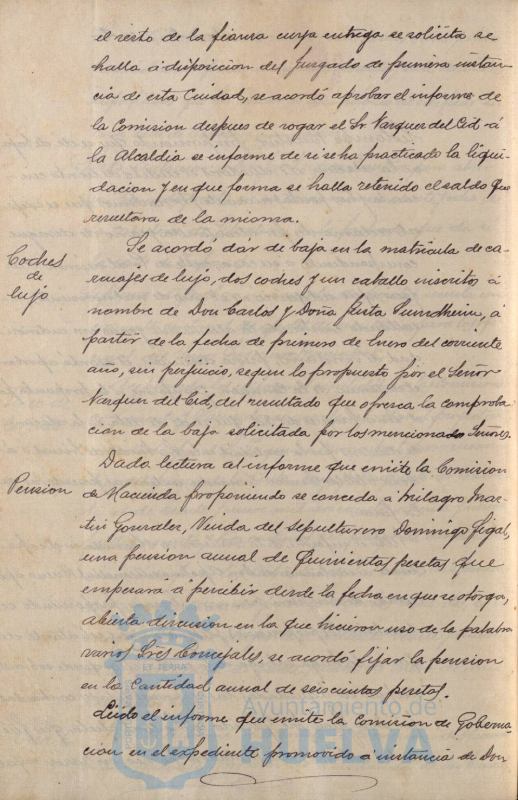 el resto de la fianza cuya entrega se solicita se
halla á disposicion del Juzgado de primera instan-
cia de esta Ciudad, se acordó aprobar el informe de
la Comision despues de rogar el Sr Vazquez del Cid á
la Alcaldia se informe de si se ha practicado la liqui-
dacion y en que forma se halla retenido el saldo que
resultara de la misma.
Coches
de
lujo
Se acordó dar de baja en la matricula de ca-
rruajes de lujo, dos coches y un caballo inscritos á
nombre de Don Carlos y Doña Sundheim, á
partir de la fecha de primero de Enero del corriente
año, sin perjuicio, segun lo propuesto por el Señor
Vazquez del Cid, del resultado que ofresca la comproba
cion de la baja solicitada por los mencionados Señores.
Pension
Dada lectura al informe que emite la Comision
de Hacienda proponiendo se conceda á Milagro Mar-
tin Gonzalez, Viuda del sepulturero Domingo Figal,
una pension anual de Quinientas pesetas que
empezará á percibir desde la fecha en que se otorga,
abierta discusion en la que hicieron uso de la palabra
varios Sres Concejales, se acordó fijar la pension
en la cantidad anual de seiscientas pesetas.
Leido el informe que emite la Comision de Goberna-
cion en el expediente promovido á instancia de Don
ET TERRÆ
Ayuntamiento de
HUELVA